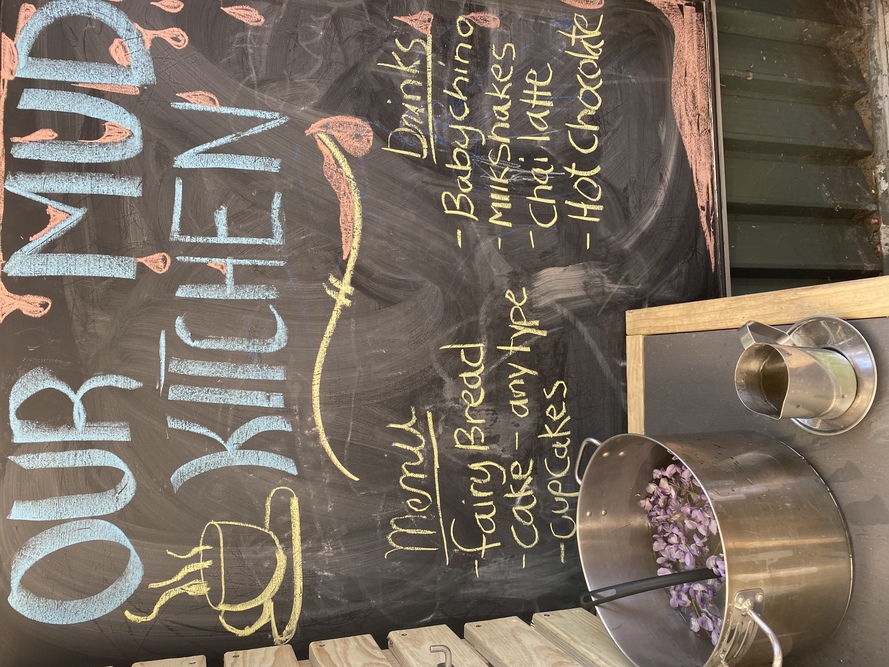 OUR MUD
KITCHEN
Menu
- Fairy Bread
- cake - any type
- cupcakes
Drinks
- Babyching
- Milkshakes
- Chai latte
- Hot Chocolate